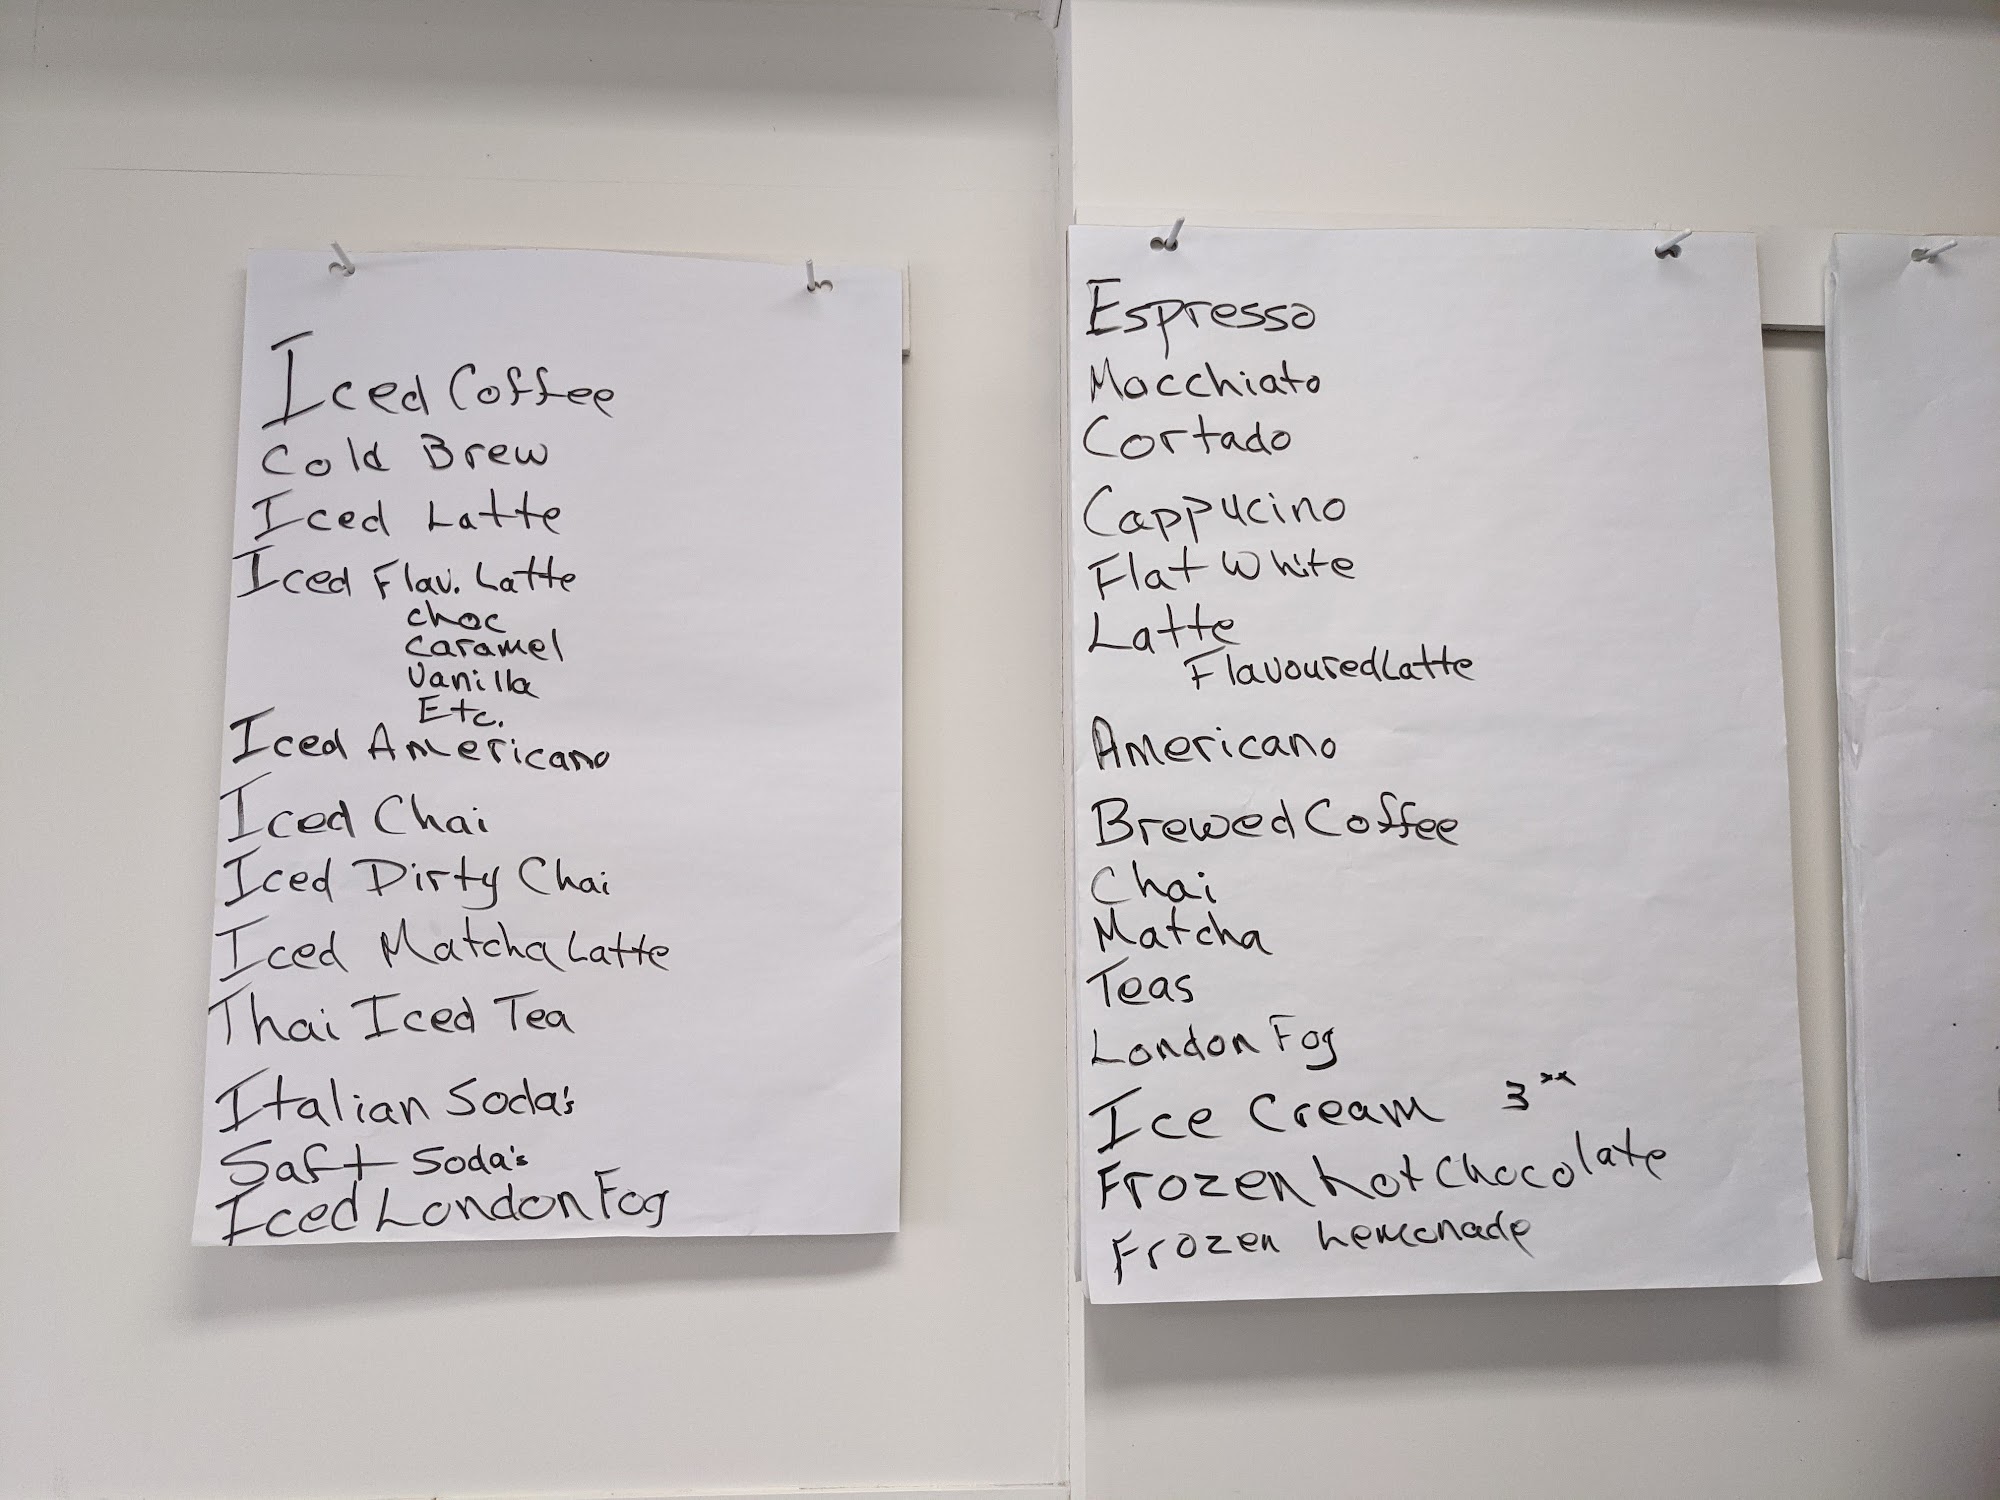 Iced Coffee
Cold Brew
Iced Latte
Iced Flav. Latte
choc
caramel
Vanilla
Etc.
Iced Americano
Iced Chai
Iced Dirty Chai
Iced Matcha Latte
Thai Iced Tea
Italian Soda's
Saft Soda's
Iced London Fog
Espresso
Macchiato
Cortado
Cappucino
Flat White
Latte
Flavoured Latte
Americano
Brewed Coffee
Chai
Matcha
Teas
London Fog
Ice Cream 3 xx
Frozen hot Chocolate
Frozen Lemonade